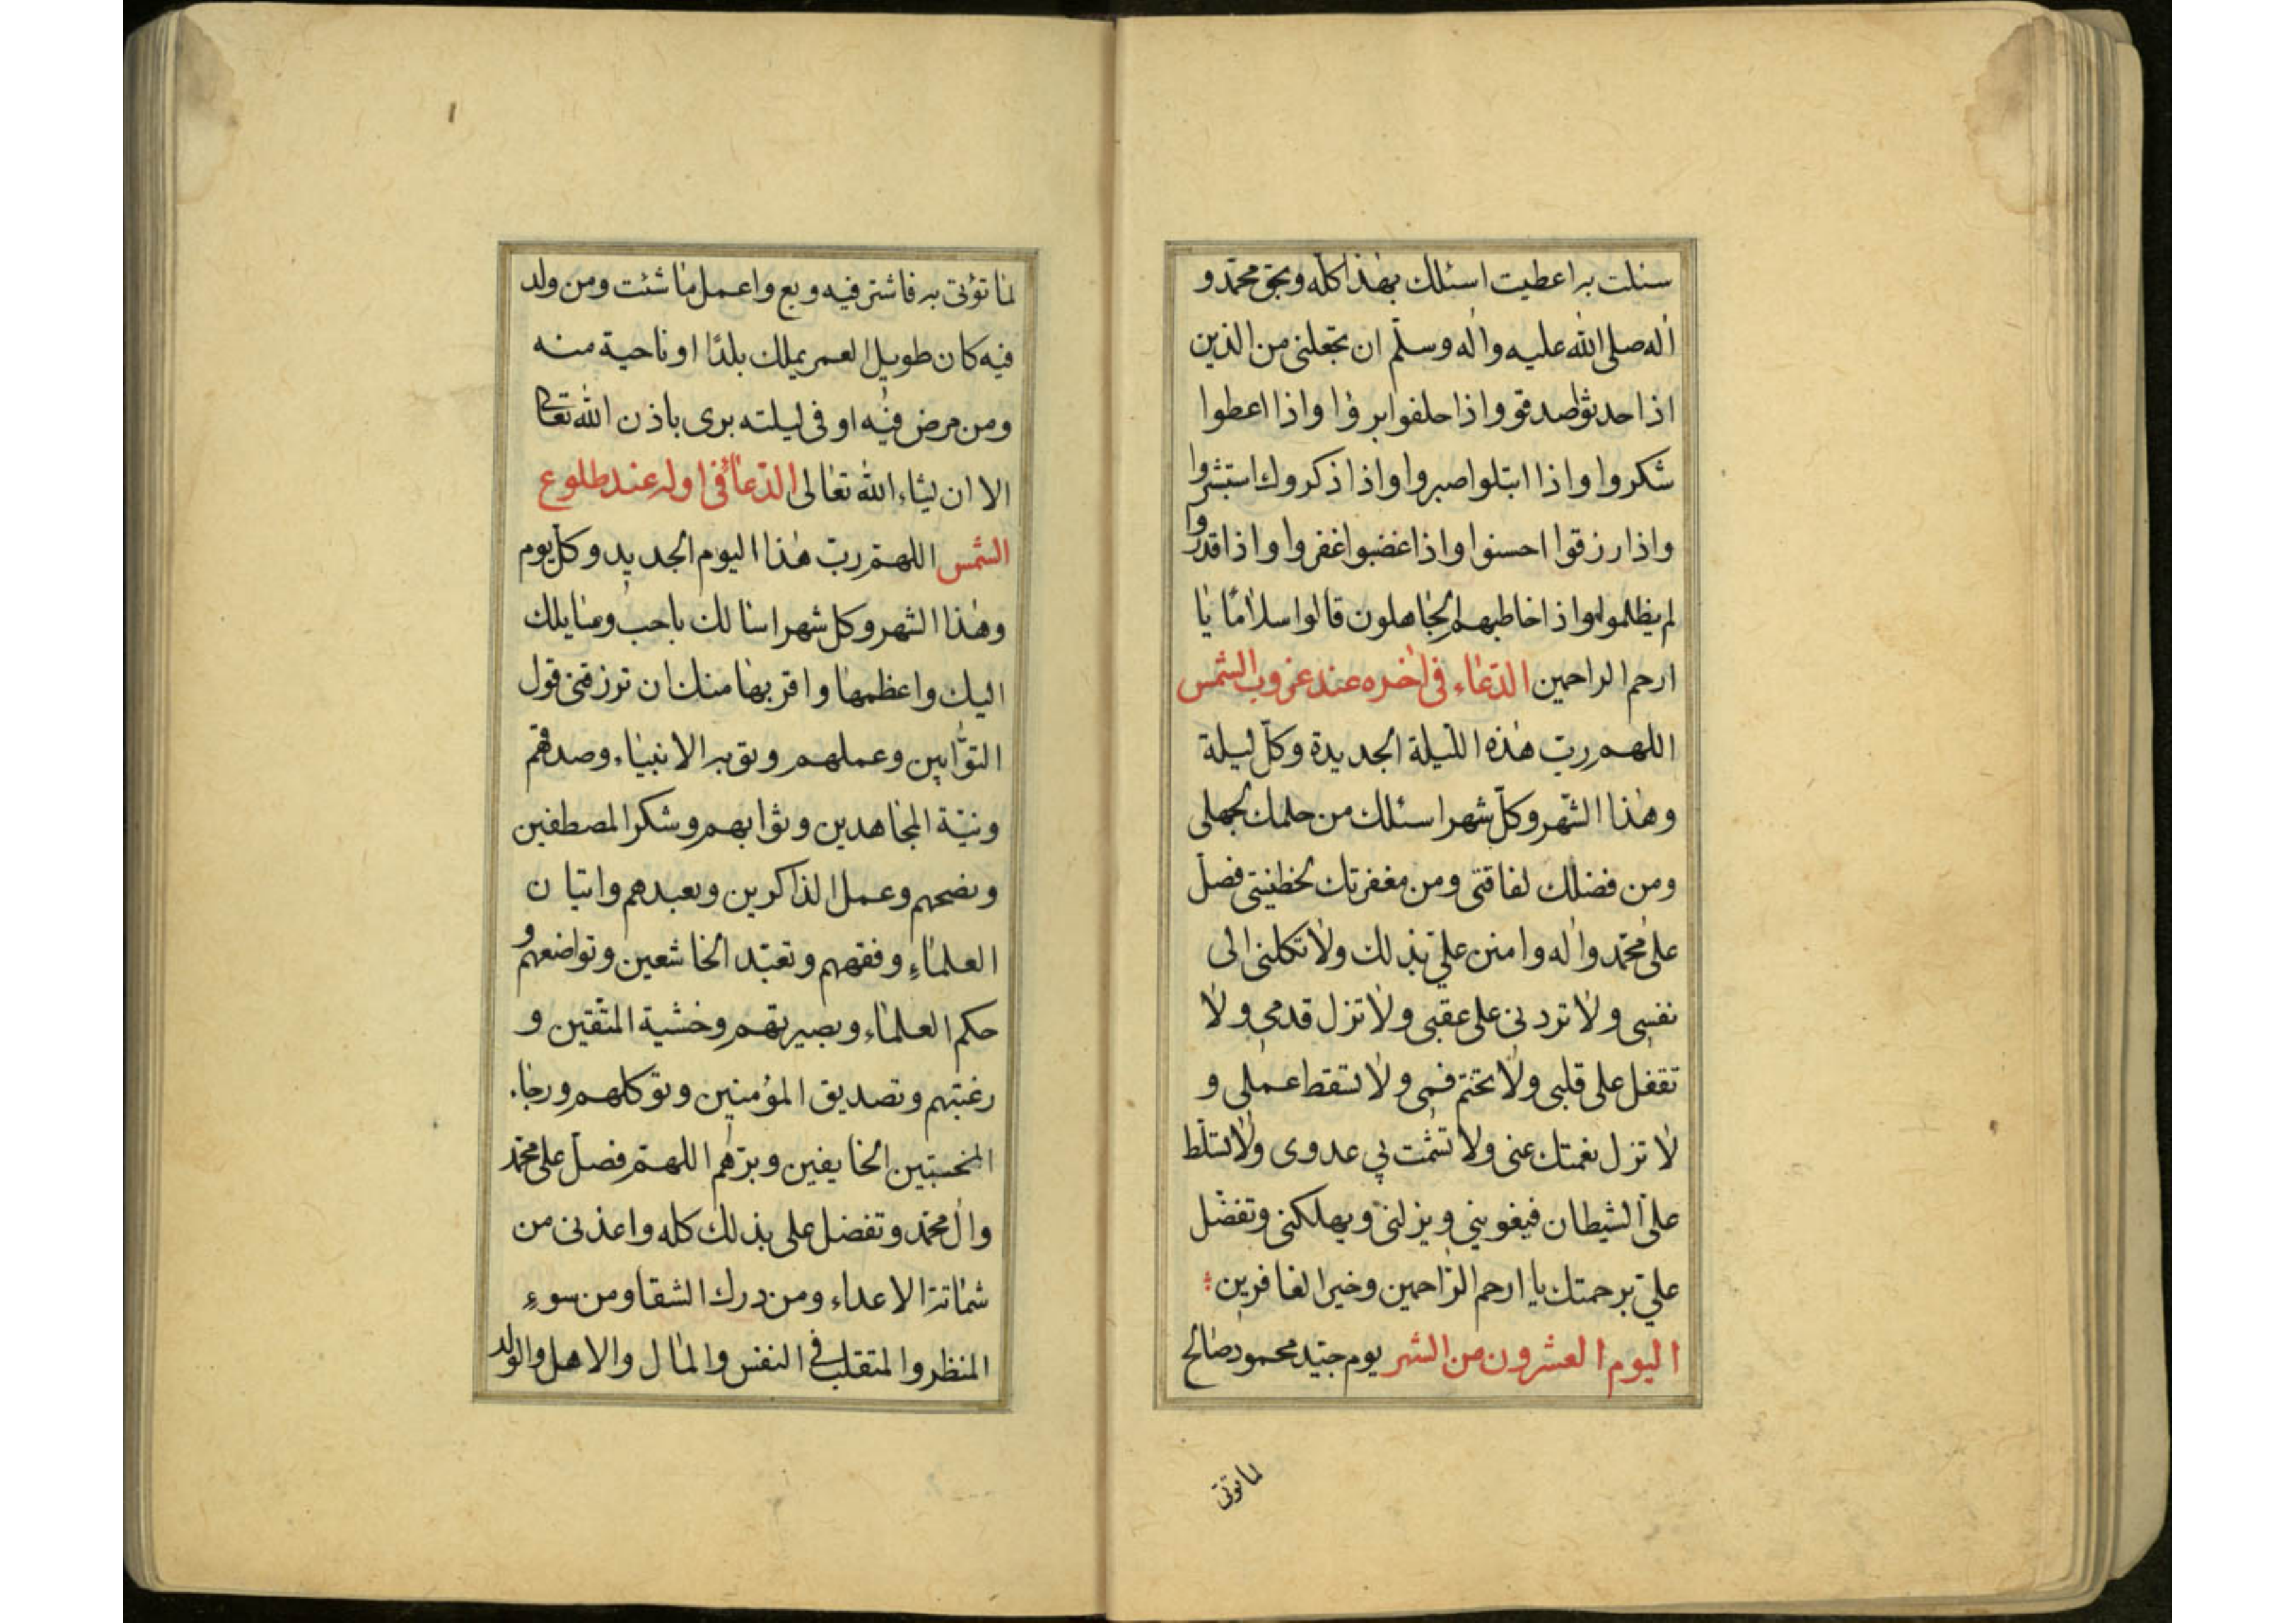 سئلت به اعطيت اسئلك بهذا كله وبحق محمد و
اله صلى الله عليه واله وسلم ان تجعلنى من الذين
اذا حدثوا صدقو واذا حلفوا بروا واذا اعطوا
شكروا واذا ابتلوا صبروا واذا ذكروك استبشروا
واذا رزقوا احسنوا واذا غضبوا غفروا واذا قدروا
لم يظلموا واذا خاطبهم الجاهلون قالوا سلاما يا
ارحم الراحمين الدعاء فى اخره عند غروب الشمس
اللهم رب هذه الليلة الجديدة وكل ليلة
وهذا الشهر وكل شهر اسئلك من حلمك لجهلى
ومن فضلك لفاقتى ومن مغفرتك لخطيئتى فصل
على محمد واله وامنن على بذلك ولا تكلنى الى
نفسى ولا تردنى على عقبى ولا تزل قدمى ولا
تقفل على قلبى ولا تختم فمى ولا تسقط عملى و
لا تزل نعمتك عنى ولا تشمت بي عدوى ولا تسلط
على الشيطان فيغويني ويزلنى ويهلكنى وتفضل
على برحمتك يا ارحم الراحمين وخير الغافرين
اليوم العشرون من الشهر يوم جيد محمود صالح
لما تؤتى
لما تؤتى به فاشتر فيه وبع واعمل ما شئت ومن ولد
فيه كان طويل العمر يملك بلدا او ناحية منه
ومن مرض فيه او فى ليلته برى باذن الله تعالى
الا ان يشاء الله تعالى الدعاء فى اوله عند طلوع
الشمس اللهم رب هذا اليوم الجديد وكل يوم
وهذا الشهر وكل شهر اسالك باحب وسايلك
اليك واعظمها واقربها منك ان ترزقنى قول
التوابين وعملهم وتوبه الانبياء وصدقهم
ونية المجاهدين وثوابهم وشكر المصطفين
ونصحهم وعمل الذاكرين وتعبدهم واتيان
العلماء وفقههم وتعبد الخاشعين وتواضعهم و
حكم العلماء وبصيرتهم وخشية المتقين و
رغبتهم وتصديق المؤمنين وتوكلهم ورجاء
الخايفين وبرهم اللهم فصل على محمد
وال محمد وتفضل على بذلك كله واعذنى من
شماتة الاعداء ومن درك الشقا ومن سوء
المنظر والمتقلب فى النفس والمال والاهل والولد